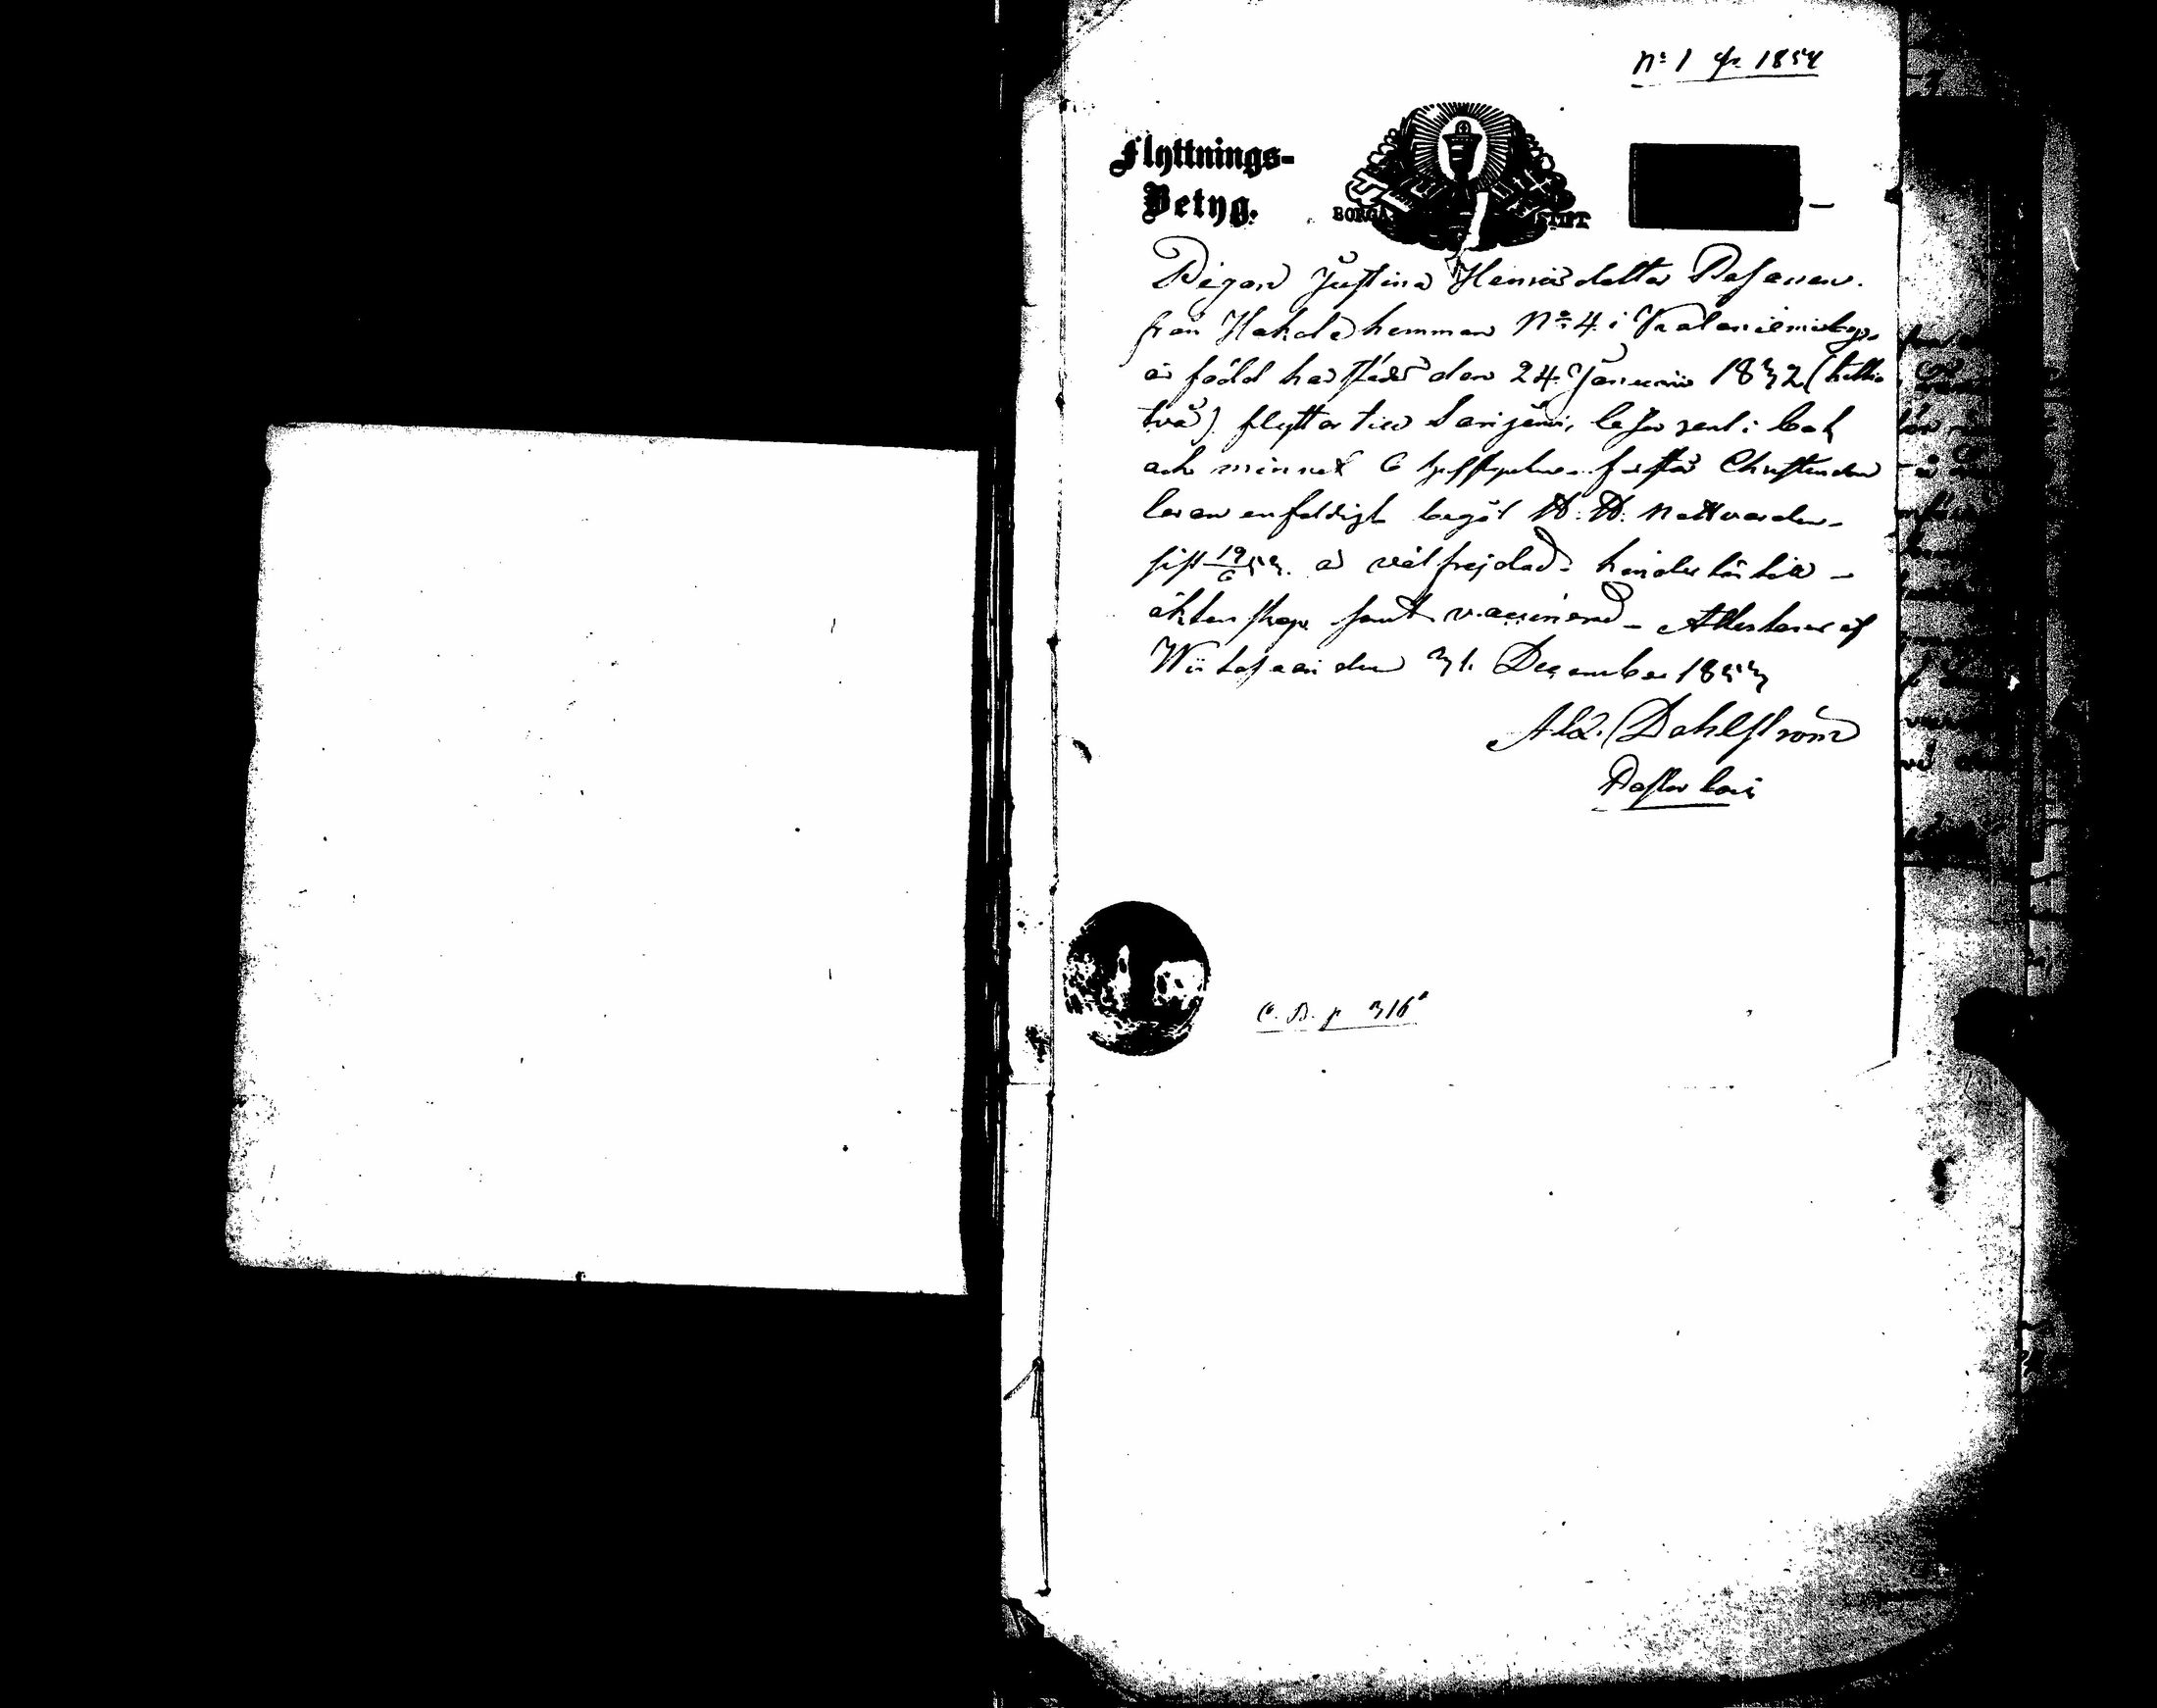 No 1 pr 1854
Flyttnings-
Betyg.
BORGÅ STIFT
Pigan Justina Henrisdotter Pasanen.
från Hakola hemman No 4. i Kalaniemi by,
är född härstädes den 24 Januarii 1832 (trettio
två) flyttar till Sarijärvi, läser rent i bok
och minnet förstår Christendoms
läran enfaldigt begåt H. H. Nattvarden
sist 19/6 53. är välfrejdad, hinderlös till
äktenskap samt vaccinerad - Attesterar af
Wiitasaari den 31. December 1853
Alx. Dahlström
Pastor loci
C. B. p 316